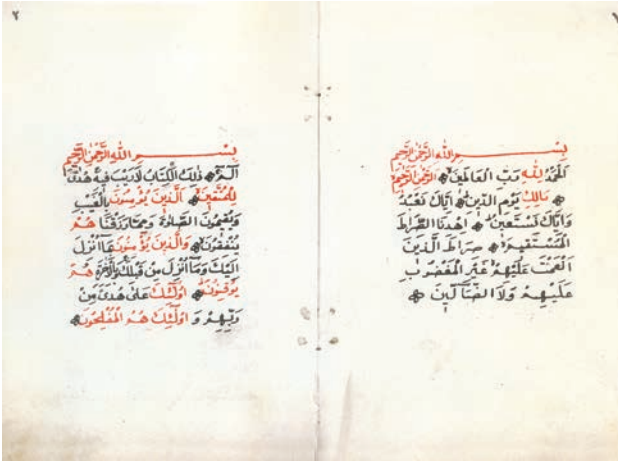 ١
بِسْمِ اللهِ الرَّحْمٰنِ الرَّحِيمِ
اَلْحَمْدُ لِلّٰهِ رَبِّ الْعَالَمِينَ الرَّحْمٰنِ الرَّحِيمِ
مَالِكِ يَوْمِ الدِّينِ اِيَّاكَ نَعْبُدُ
وَاِيَّاكَ نَسْتَعِينُ اِهْدِنَا الصِّرَاطَ
الْمُسْتَقِيمَ صِرَاطَ الَّذِينَ
اَنْعَمْتَ عَلَيْهِمْ غَيْرِ الْمَغْضُوبِ
عَلَيْهِمْ وَلَا الضَّالِّينَ
٢
بِسْمِ اللهِ الرَّحْمٰنِ الرَّحِيمِ
الٓمٓ ذٰلِكَ الْكِتَابُ لَا رَيْبَ فِيهِ هُدًى
لِلْمُتَّقِينَ اَلَّذِينَ يُؤْمِنُونَ بِالْغَيْبِ
وَيُقِيمُونَ الصَّلٰوةَ وَمِمَّا رَزَقْنَاهُمْ
يُنْفِقُونَ وَالَّذِينَ يُؤْمِنُونَ بِمَا اُنْزِلَ
اِلَيْكَ وَمَا اُنْزِلَ مِنْ قَبْلِكَ وَبِالْاٰخِرَةِ هُمْ
يُوقِنُونَ اُولٰئِكَ عَلٰى هُدًى مِنْ
رَبِّهِمْ وَ اُولٰئِكَ هُمُ الْمُفْلِحُونَ